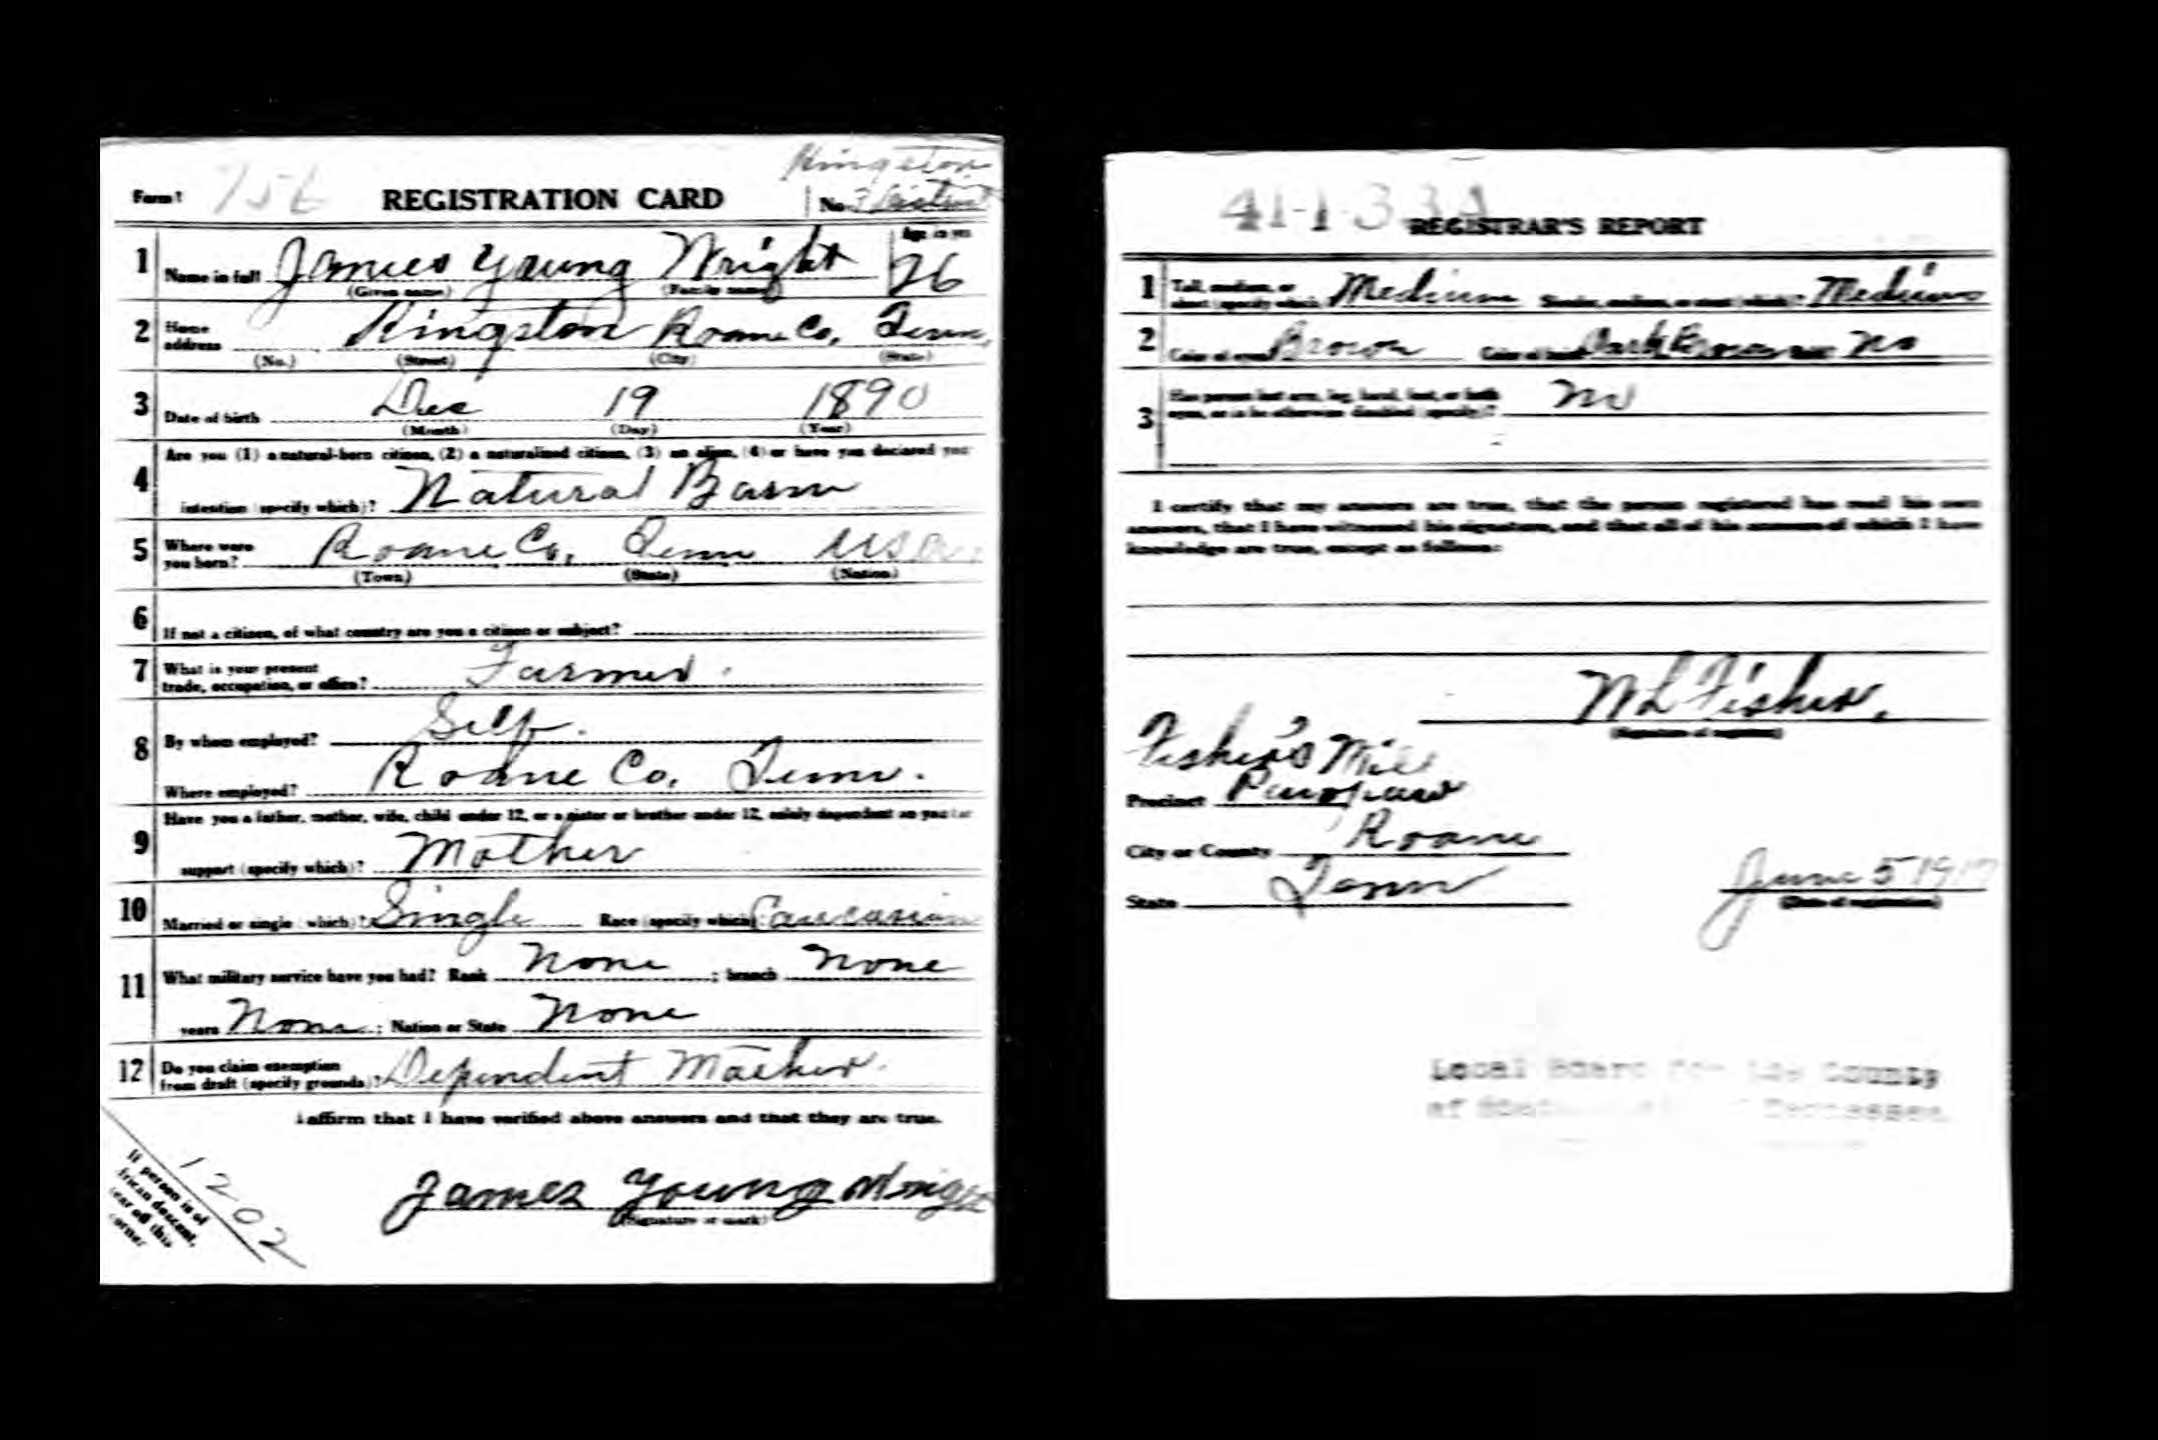 Kingston
Form 1 756 REGISTRATION CARD No 3 District
Age in yrs
1 Name in full James Young Wright 26
(Given name) (Family name)
2 Home address Kingston Roane Co, Tenn,
(No.) (Street) (City) (State)
3 Date of birth Dec 19 1890
(Month) (Day) (Year)
4 Are you (1) a natural-born citizen, (2) a naturalized citizen, (3) an alien, (4) or have you declared your
intention (specify which)? Natural Born
5 Where were you born? Roane Co, Tenn USA
(Town) (State) (Nation)
6 If not a citizen, of what country are you a citizen or subject?
7 What is your present
trade, occupation, or office? Farmer.
8 By whom employed? Self.
Where employed? Roane Co, Tenn.
9 Have you a father, mother, wife, child under 12, or a sister or brother under 12, solely dependent on you for
support (specify which)? Mother
10 Married or single (which)? Single Race (specify which) Caucasian
11 What military service have you had? Rank None ; branch None
years None ; Nation or State None
12 Do you claim exemption
from draft (specify grounds)? Dependent Mother.
I affirm that I have verified above answers and that they are true.
James Young Wright
(Signature or mark)
If person is of
African descent,
tear off this
corner
1202
41-1-33 A
REGISTRAR'S REPORT
1 Tall, medium, or
short (specify which) Medium Slender, medium, or stout (which)? Medium
2 Color of eyes Brown Color of hair Dark Brown No
3 Has person lost arm, leg, hand, foot, or both
eyes, or is he otherwise disabled (specify)? No
I certify that my answers are true, that the person registered has read his own
answers, that I have witnessed his signature, and that all of his answers of which I have
knowledge are true, except as follows:
W L Fisher,
(Signature of registrar)
Fisher's Mill
Precinct
City or County Roane
State Tenn
June 5 1917
(Date of registration)
Local Board for the County
of Tennessee.